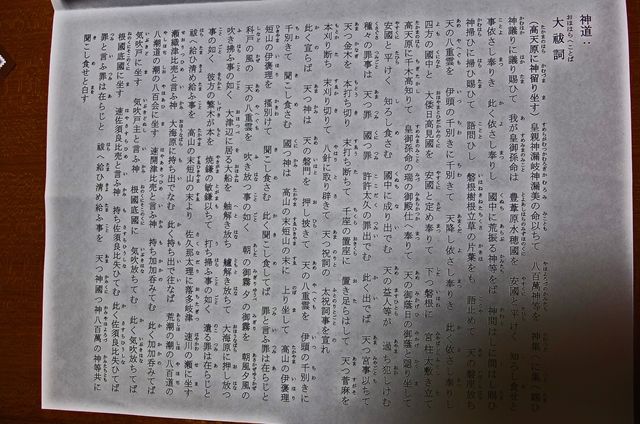 神道：
大祓詞
（高天原に神留り坐す）皇親神漏岐神漏美の命以ちて 八百萬神等を 神集へに集へ賜ひ
神議りに議り賜ひて 我が皇御孫命は 豊葦原水穂國を 安國と平けく 知ろし食せと
事依さし奉りき 此く依さし奉りし 國中に 荒振る神等をば 神問はしに問はし賜ひ
神掃ひに掃ひ賜ひて 語問ひし 磐根樹根立草の片葉をも 語止めて 天の磐座放ち
天の八重雲を 伊頭の千別きに千別きて 天降し依さし奉りき 此く依さし奉りし
四方の國中と 大倭日高見國を 安國と定め奉りて 下つ磐根に 宮柱太敷き立て
高天原に千木高知りて 皇御孫命の瑞の御殿仕へ奉りて 天の御蔭日の御蔭と隠り坐して
安國と平けく 知ろし食さむ 國中に成り出でむ 天の益人等が 過ち犯しけむ
種種の罪事は 天つ罪 國つ罪 許許太久の罪出でむ 此く出でば 天つ宮事以ちて
天つ金木を 本打ち切り 末打ち断ちて 千座の置座に 置き足らはして 天つ菅麻を
本刈り断ち 末刈り切りて 八針に取り辟きて 天つ祝詞の 太祝詞事を宣れ
此く宣らば 天つ神は 天の磐門を 押し披きて 天の八重雲を 伊頭の千別きに
千別きて 聞こし食さむ 國つ神は 高山の末短山の末に 上り坐して 高山の伊褒理
短山の伊褒理を 掻別けて 聞こし食さむ 此く聞こし食してば 罪と言ふ罪は在らじと
科戸の風の 天の八重雲を 吹き放つ事の如く 朝の御霧 夕の御霧を 朝風夕風の
吹き拂ふ事の如く 大津辺に居る大船を 舳解き放ち 艫解き放ちて 大海原に押し放つ
事の如く 彼方の繁木が本を 焼鎌の敏鎌以ちて 打ち掃ふ事の如く 遺る罪は在らじと
祓へ給ひ清め給ふ事を 高山の末短山の末より 佐久那太理に落多岐つ 速川の瀬に坐す
瀬織津比売と言ふ神 大海原に持ち出でなむ 此く持ち出で往なば 荒潮の潮の八百道の
八潮道の潮の八百会に坐す 速開津比売と言ふ神 持ち加加呑みてむ 此く加加呑みてば
気吹戸に坐す 気吹戸主と言ふ神 根國底國に 気吹放ちてむ 此く気吹放ちてば
根國底國に坐す 速佐須良比売と言ふ神 持ち佐須良比失ひてむ 此く佐須良比失ひてば
罪と言ふ罪は在らじと 祓へ給ひ清め給ふ事を 天つ神國つ神八百萬の神等共に
聞こし食せと白す